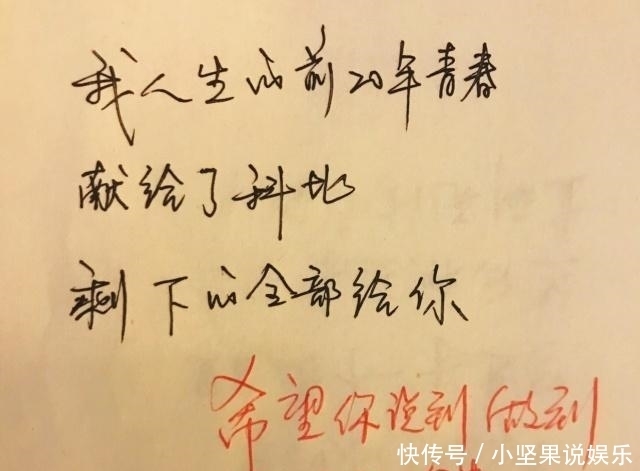 我人生的前20年青春
献给了科比
剩下的全部给你
希望你说到做到
快传号/小坚果说娱乐